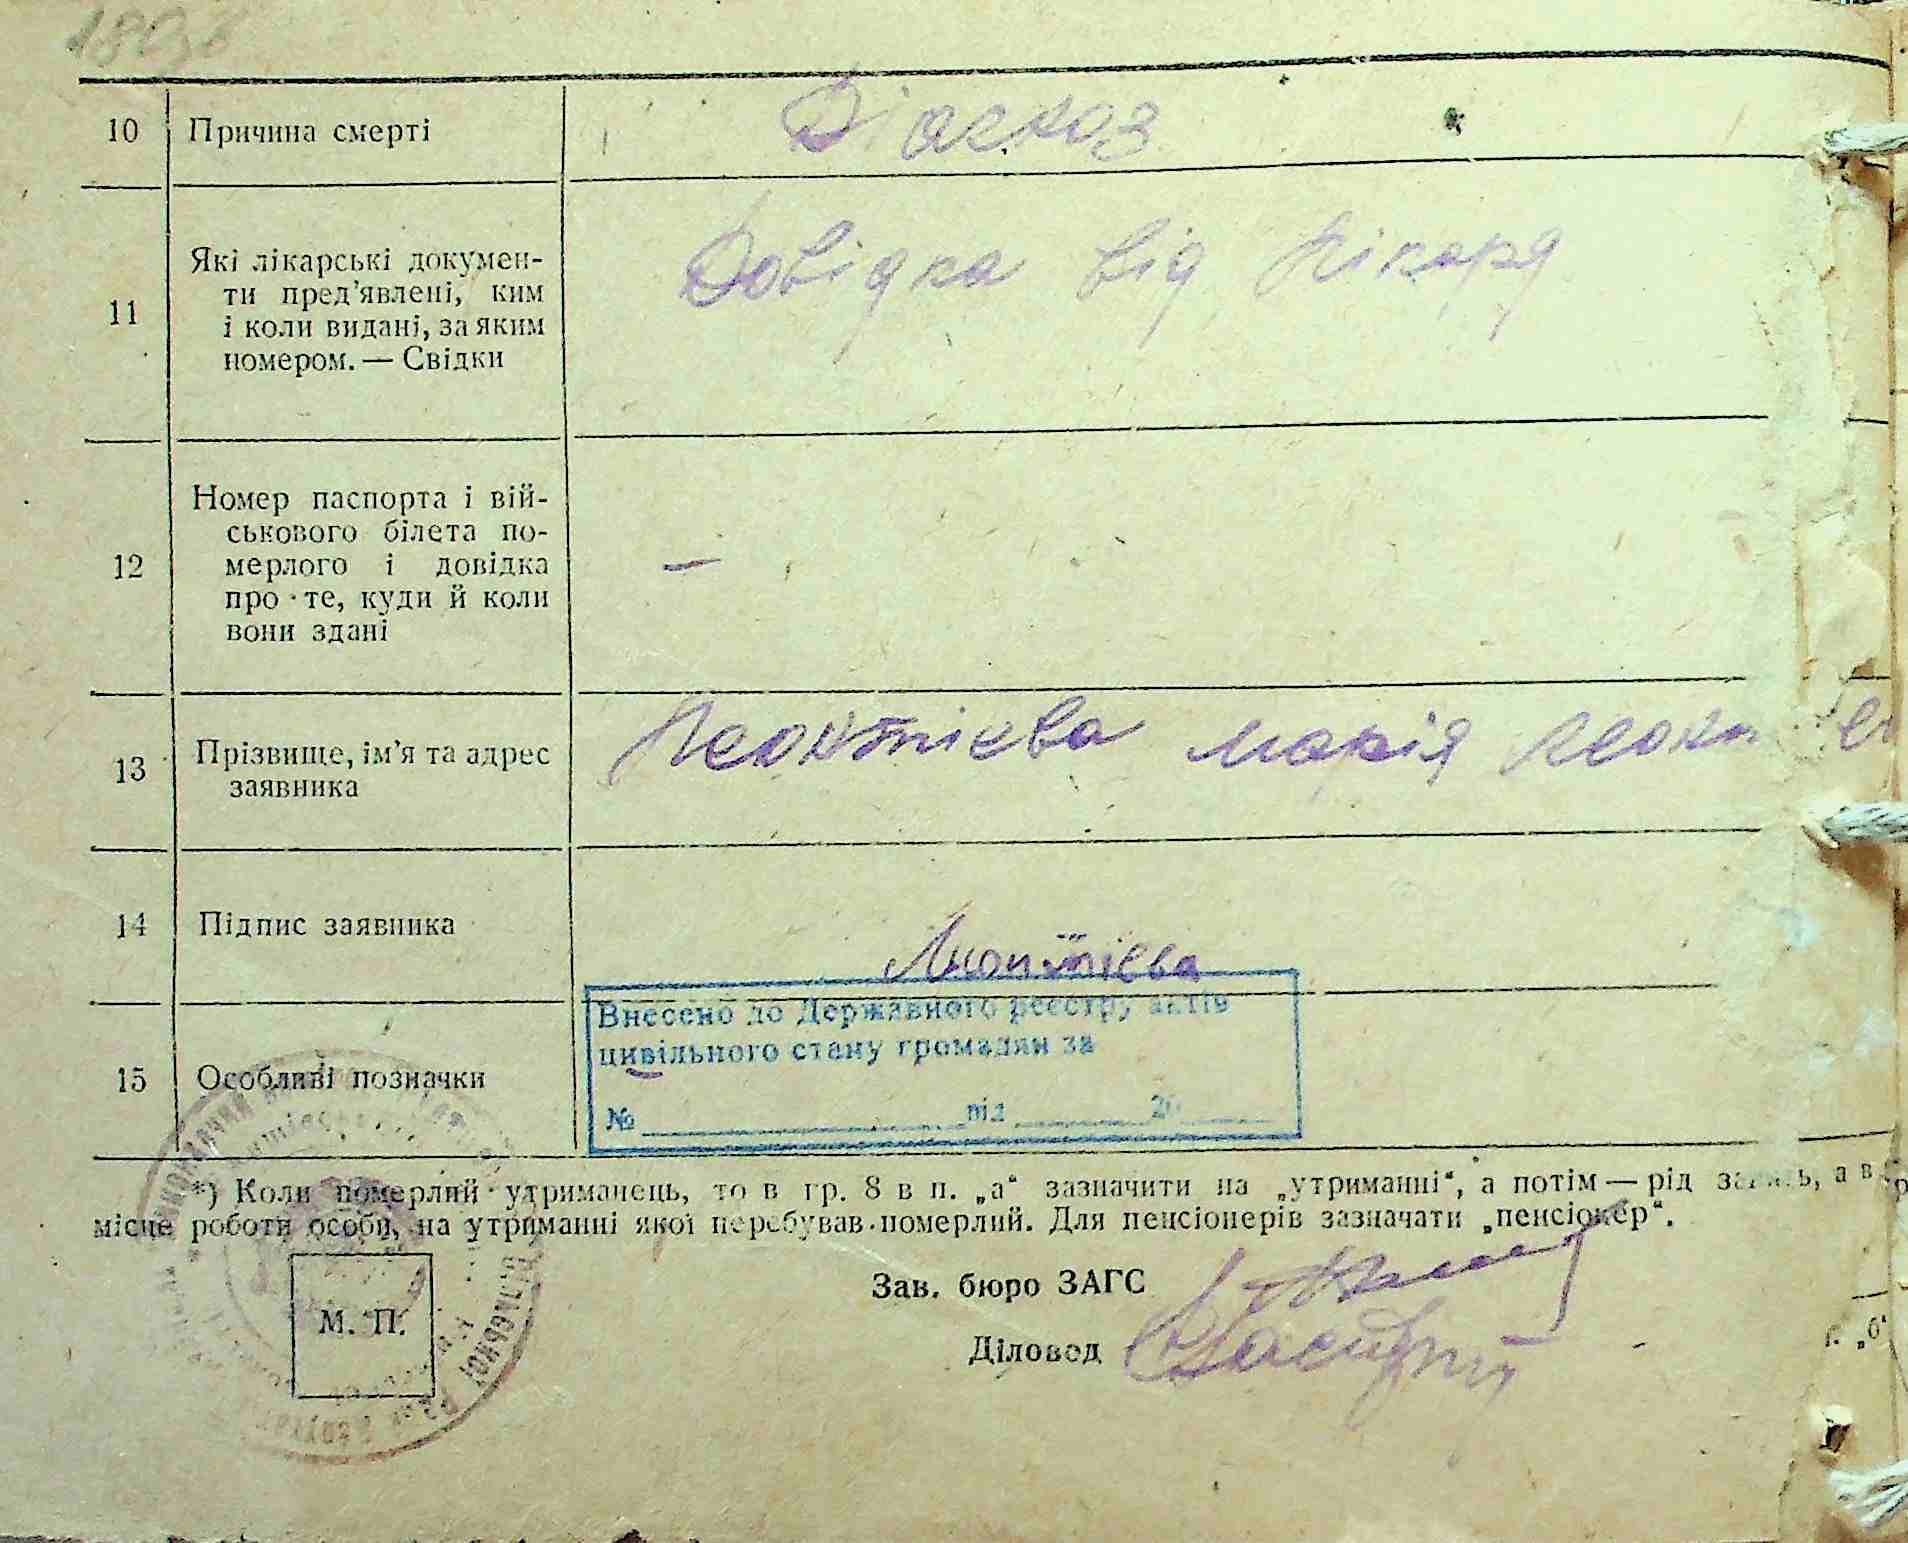 10 Причина смерті Діагноз
11 Які лікарські докумен-
ти пред'явлені, ким
і коли видані, за яким
номером. — Свідки
Довідка від лікаря
12 Номер паспорта і вій-
ськового білета по-
мерлого і довідка
про те, куди й коли
вони здані
—
13 Прізвище, ім'я та адрес
заявника
Марія
14 Підпис заявника
15 Особливі позначки
Внесено до Державного реєстру актів
цивільного стану громадян за
№ від 20
*) Коли померлий утриманець, то в гр. 8 в п. „а“ зазначити на „утриманні“, а потім — рід а в
місце роботи особи, на утриманні якої перебував померлий. Для пенсіонерів зазначати „пенсіонер“.
М. П.
Зав. бюро ЗАГС
Діловод
„б“